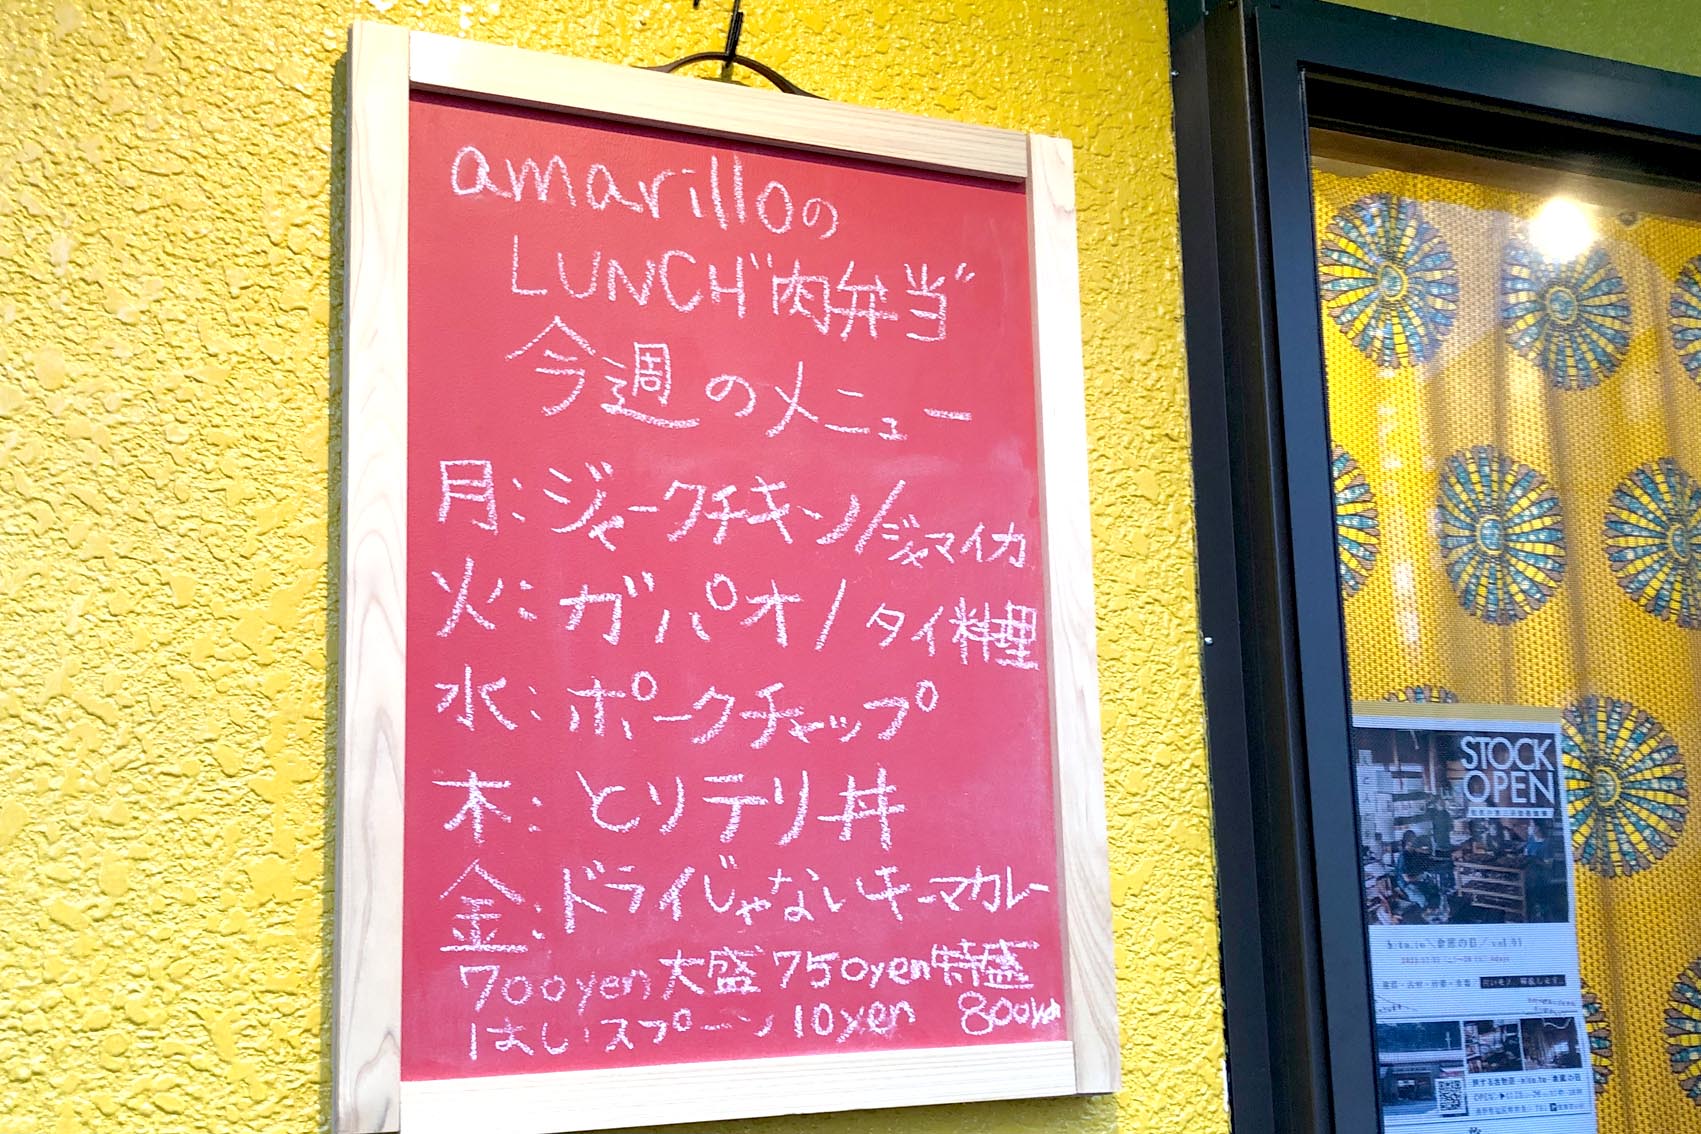 amarilloの
LUNCH"肉弁当"
今週のメニュー
月:ジャークチキーン/ジャマイカ
火:ガパオ/タイ料理
水:ポークチャップ
木:とりテリ丼
金:ドライじゃないキーマカレー
700yen 大盛750yen 特盛
はし・スプーン10yen 800yen
STOCK
OPEN